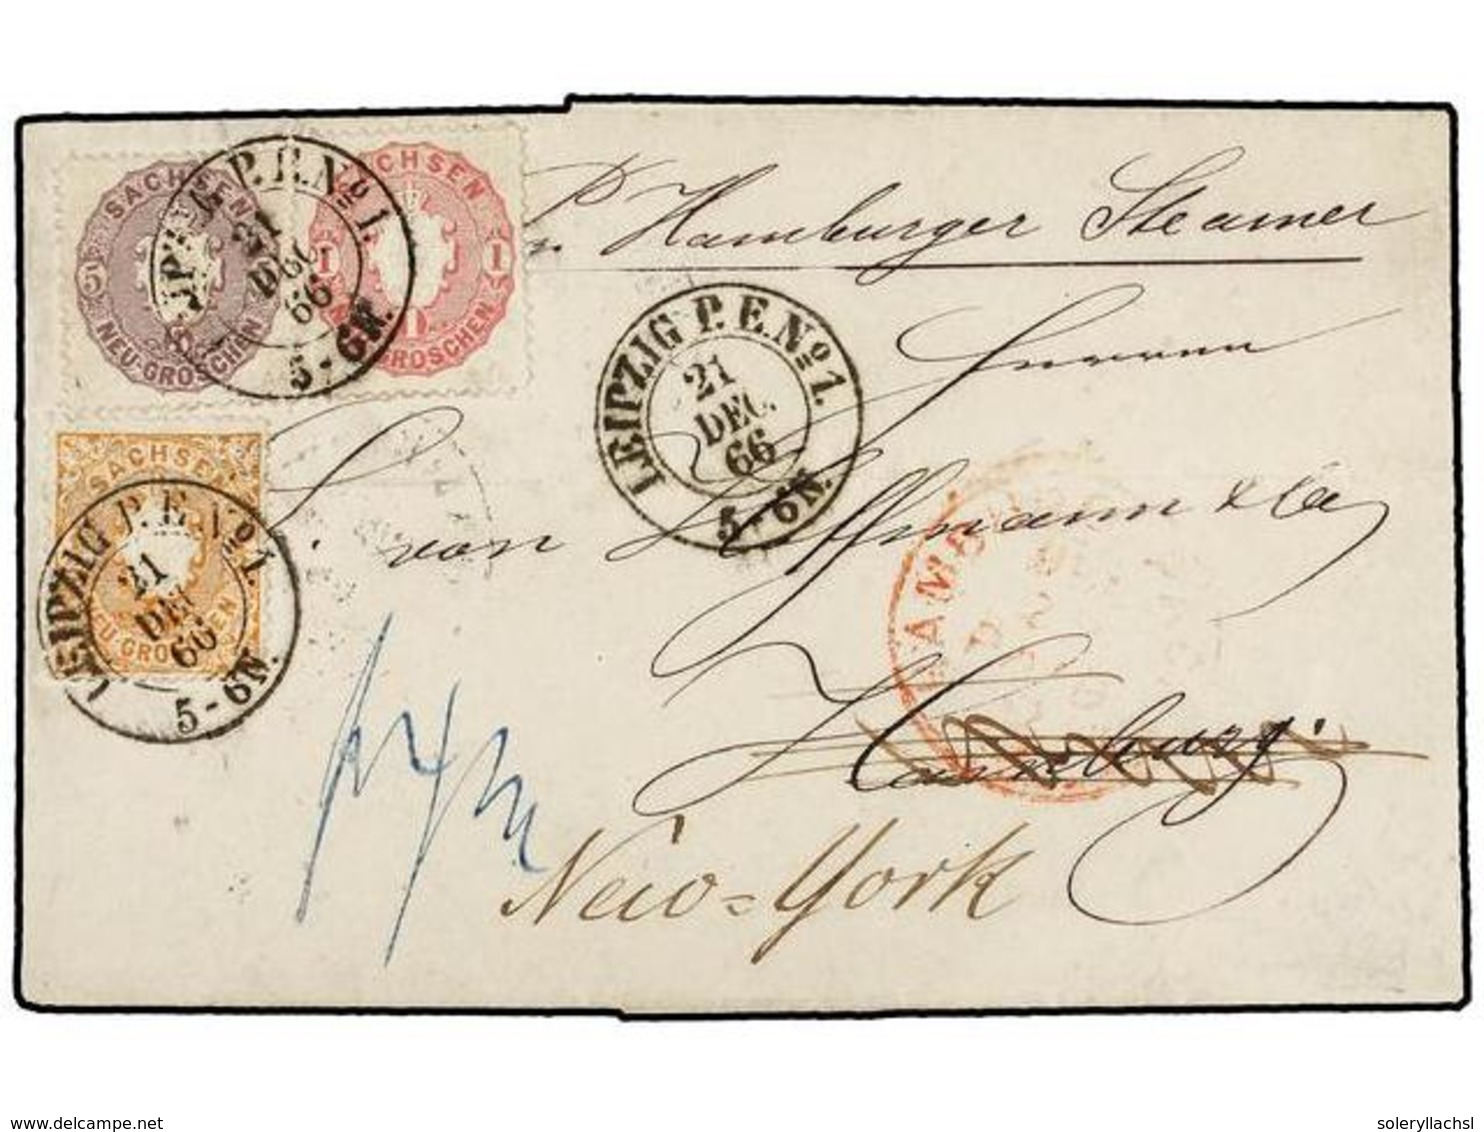 SACHSEN
5
NEU-GROSCHEN
SACHSEN
1 1
1
GROSCHEN
P. E. No 1.
21
DEC.
66
5 - 6N.
pr Hamburger Steamer
LEIPZIG P. E. No 1.
21
DEC.
66
5 - 6N.
Herren
SACHSEN
NEU-GROSCHEN
LEIPZIG P. E. No 1.
21
DEC
66
5 - 6N.
von & Co
HAMB
Hamburg.
New=York
www.delcampe.net
soleryllachsl